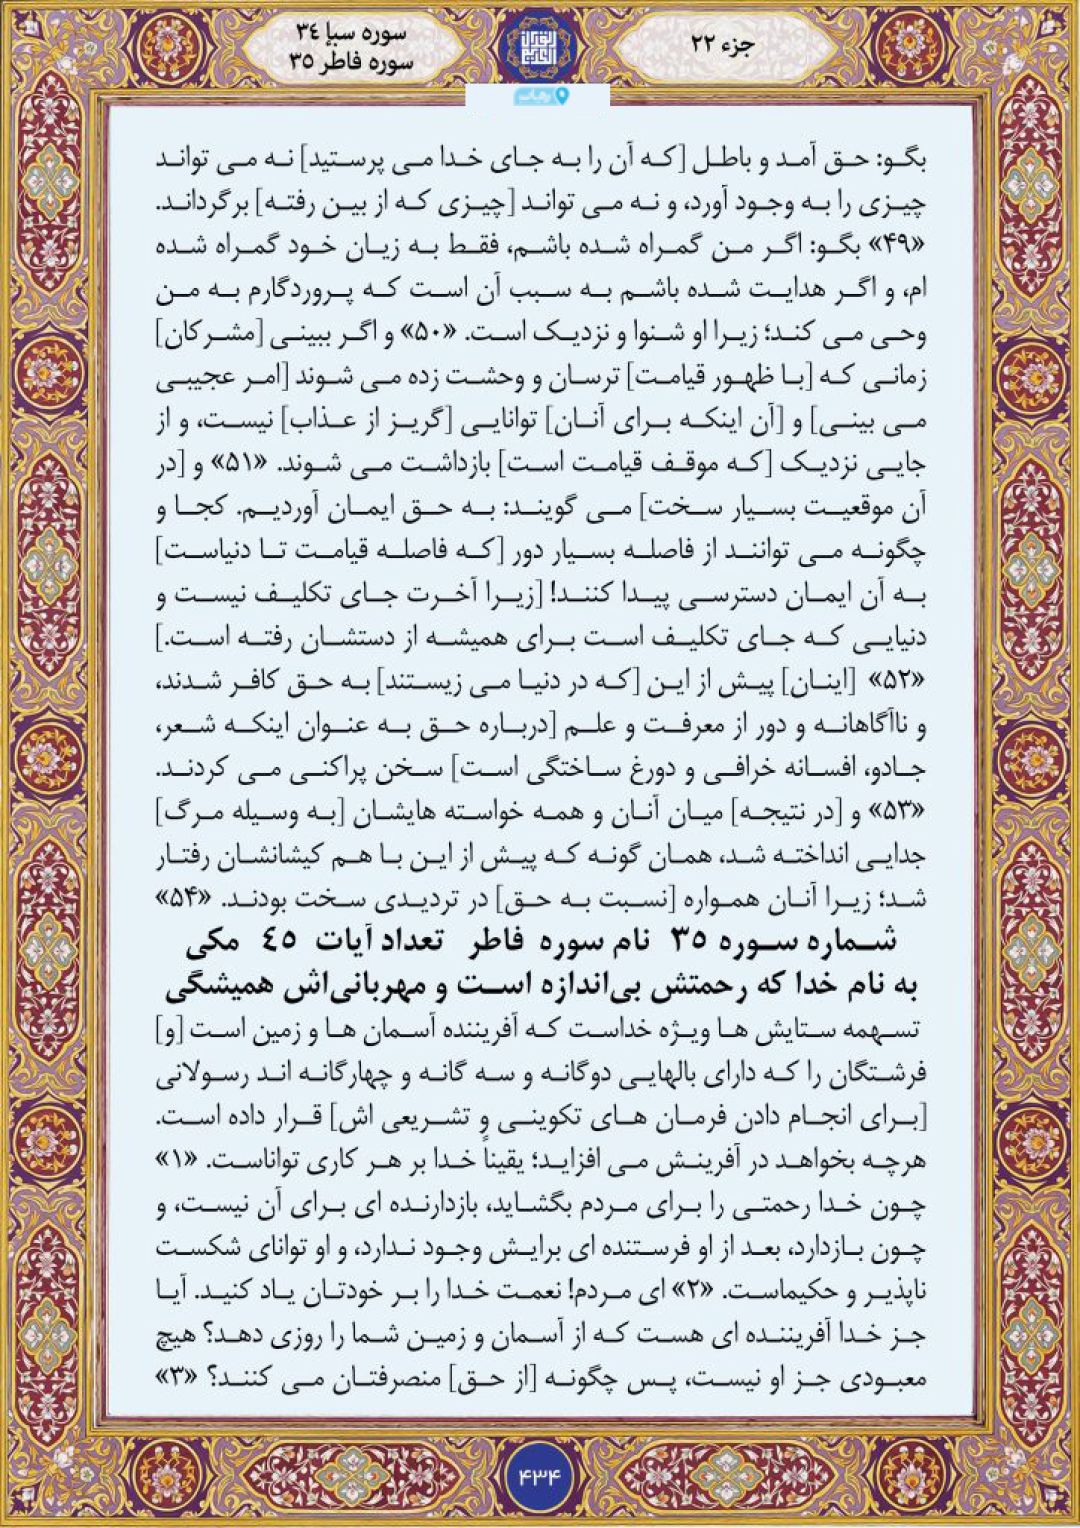 جزء ۲۲
سوره سبإ ٣٤
سوره فاطر ٣٥
بگو: حق آمد و باطل [که آن را به جای خدا می پرستید] نه می تواند
چیزی را به وجود آورد، و نه می تواند [چیزی که از بین رفته] برگرداند.
«۴۹» بگو: اگر من گمراه شده باشم، فقط به زیان خود گمراه شده
ام، و اگر هدایت شده باشم به سبب آن است که پروردگارم به من
وحی می کند؛ زیرا او شنوا و نزدیک است. «۵۰» و اگر ببینی [مشرکان]
زمانی که [با ظهور قیامت] ترسان و وحشت زده می شوند [امر عجیبی
می بینی] و [آن اینکه برای آنان] توانایی [گریز از عذاب] نیست، و از
جایی نزدیک [که موقف قیامت است] بازداشت می شوند. «۵۱» و [در
آن موقعیت بسیار سخت] می گویند: به حق ایمان آوردیم. کجا و
چگونه می توانند از فاصله بسیار دور [که فاصله قیامت تا دنیاست]
به آن ایمان دسترسی پیدا کنند! [زیرا آخرت جای تکلیف نیست و
دنیایی که جای تکلیف است برای همیشه از دستشان رفته است.]
«۵۲» [اینان] پیش از این [که در دنیا می زیستند] به حق کافر شدند،
و ناآگاهانه و دور از معرفت و علم [درباره حق به عنوان اینکه شعر،
جادو، افسانه خرافی و دورغ ساختگی است] سخن پراکنی می کردند.
«۵۳» و [در نتیجه] میان آنان و همه خواسته هایشان [به وسیله مرگ]
جدایی انداخته شد، همان گونه که پیش از این با هم کیشانشان رفتار
شد؛ زیرا آنان همواره [نسبت به حق] در تردیدی سخت بودند. «۵۴»
شماره سوره ٣٥ نام سوره فاطر تعداد آیات ٤٥ مکی
به نام خدا که رحمتش بی‌اندازه است و مهربانی‌اش همیشگی
تسهمه ستایش ها ویژه خداست که آفریننده آسمان ها و زمین است [و]
فرشتگان را که دارای بالهایی دوگانه و سه گانه و چهارگانه اند رسولانی
[برای انجام دادن فرمان های تکوینی و تشریعی اش] قرار داده است.
هرچه بخواهد در آفرینش می افزاید؛ یقیناً خدا بر هر کاری تواناست. «۱»
چون خدا رحمتی را برای مردم بگشاید، بازدارنده ای برای آن نیست، و
چون بازدارد، بعد از او فرستنده ای برایش وجود ندارد، و او توانای شکست
ناپذیر و حکیماست. «۲» ای مردم! نعمت خدا را بر خودتان یاد کنید. آیا
جز خدا آفریننده ای هست که از آسمان و زمین شما را روزی دهد؟ هیچ
معبودی جز او نیست، پس چگونه [از حق] منصرفتان می کنند؟ «۳»
۴۳۴